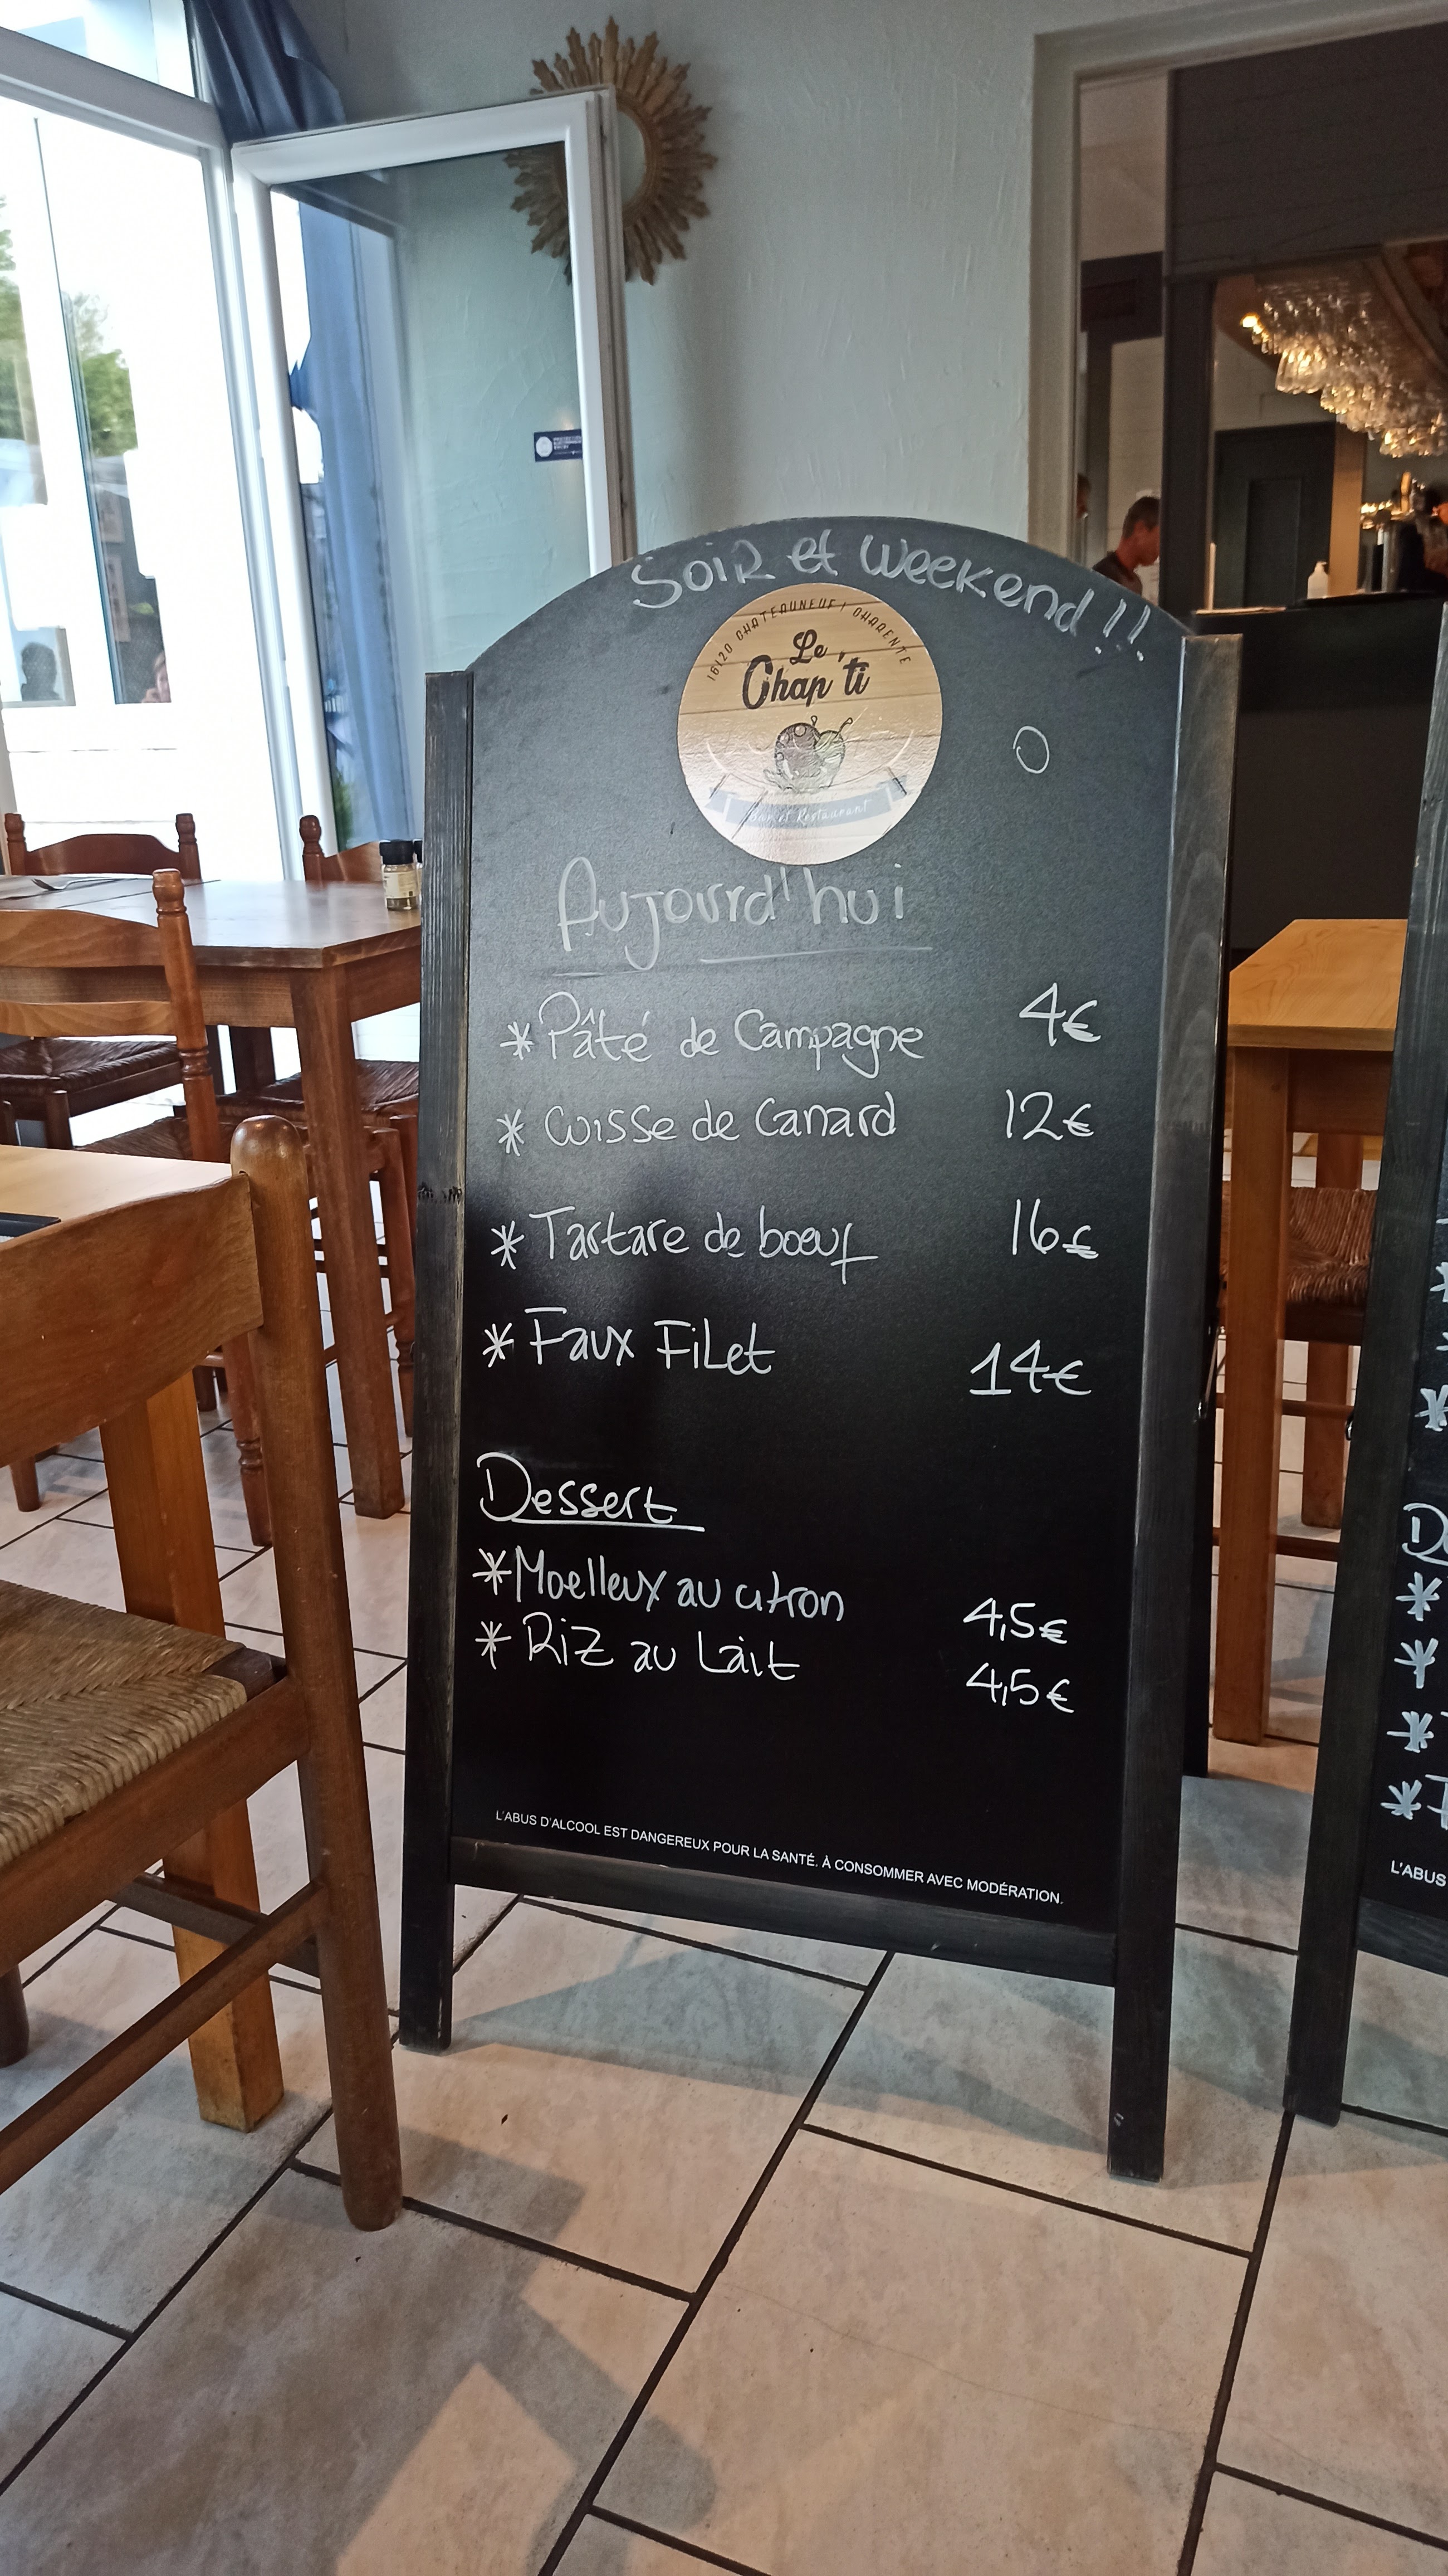 SOIR et WEEKEnd !!
16120 CHATEAUNEUF / CHARENTE
Le
Chap'ti
Bar et Restaurant
Aujourd'hui
* Pâté de Campagne 4€
* Cuisse de Canard 12€
* Tartare de boeuf 16€
* Faux FiLet 14€
Dessert
* Moelleux au citron 4,5€
* Riz au Lait 4,5€
L'ABUS D'ALCOOL EST DANGEREUX POUR LA SANTÉ. À CONSOMMER AVEC MODÉRATION.
L'ABUS